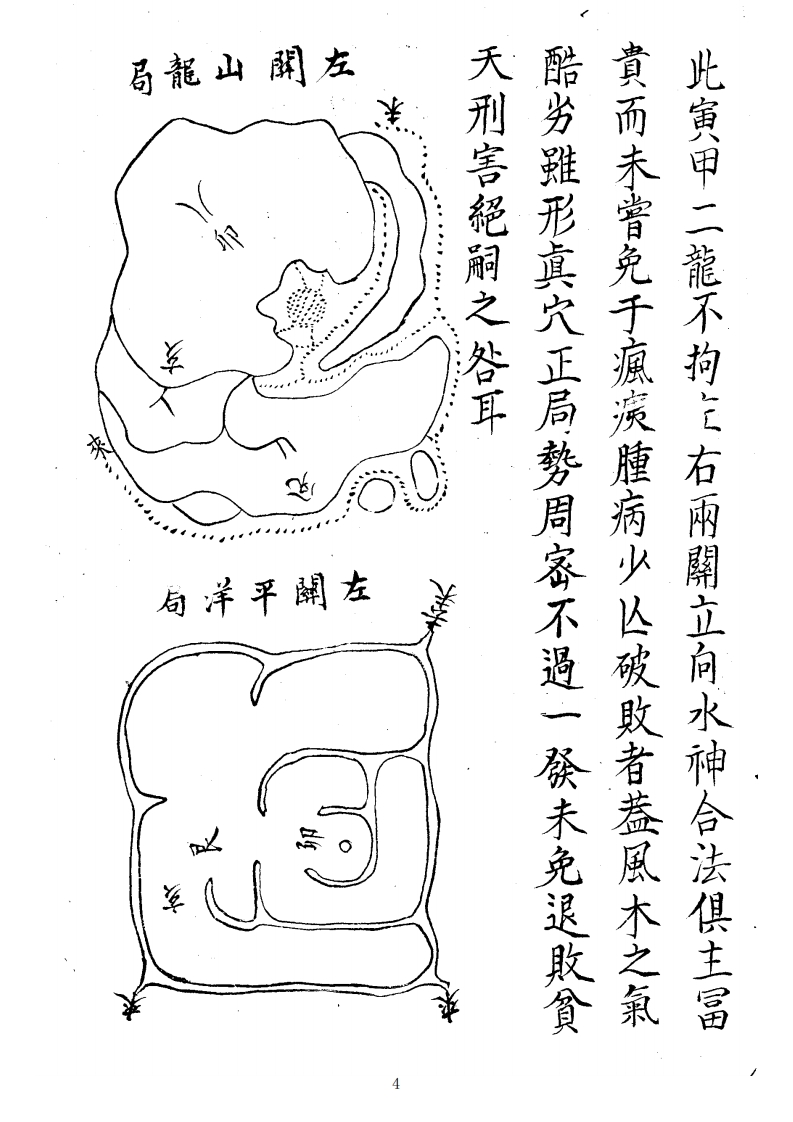 此寅甲二龍不拘左右兩關立向水神合法俱主冨
貴而未嘗免于瘋腫病少亾破敗者葢風木之氣
酷劣雖形眞穴正局勢周宻不過一發未免退敗貧
夭刑害絕嗣之咎耳
左關山龍局
來
卯
亥
來
左關平洋局
來
艮
卯
亥
來
來
4